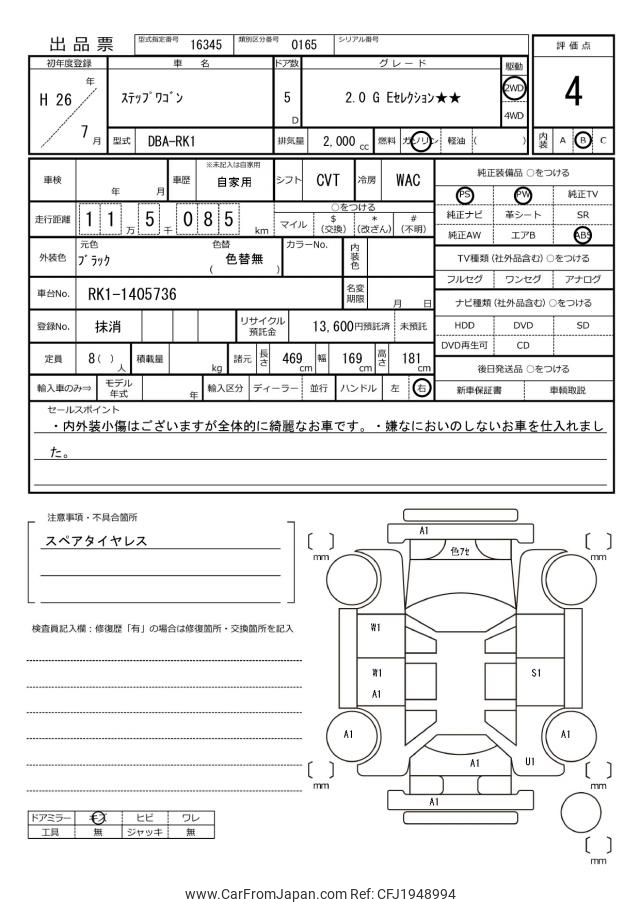 出品票
型式指定番号 16345 類別区分番号 0165 シリアル番号
評価点
初年度登録 車名 ドア数 グレード 駆動
H 26 年 7 月
ｽﾃｯﾌﾟﾜｺﾞﾝ
5 D
2.0 G Eｾﾚｸｼｮﾝ★★
2WD
4WD
4
型式 DBA-RK1 排気量 2,000 cc 燃料 ガソリン 軽油 ( )
内装 A B C
車検 年 月 車歴 ※未記入は自家用 自家用 シフト CVT 冷房 WAC
純正装備品 ○をつける
PS PW 純正TV
純正ナビ 革シート SR
純正AW エアB ABS
走行距離 115万 千 085 km
○をつける
マイル $(交換) *(改ざん) #(不明)
外装色 元色 ﾌﾞﾗｯｸ 色替 ( 色替無 ) カラーNo. 内装色
TV種類 (社外品含む) ○をつける
フルセグ ワンセグ アナログ
車台No. RK1-1405736 名変期限 月 日
ナビ種類 (社外品含む) ○をつける
HDD DVD SD
DVD再生可 CD
登録No. 抹消 リサイクル預託金 13,600円預託済 未預託
定員 8( )人 積載量 kg 諸元 長さ 469cm 幅 169cm 高さ 181cm
後日発送品 ○をつける
新車保証書 車輌取説
輸入車のみ⇒ モデル年式 年 輸入区分 ディーラー 並行 ハンドル 左 右
セールスポイント
・内外装小傷はございますが全体的に綺麗なお車です。・嫌なにおいのしないお車を仕入れまし
た。
注意事項・不具合箇所
スペアタイヤレス
検査員記入欄：修復歴「有」の場合は修復箇所・交換箇所を記入
A1
色ｱｾ
mm
mm
W1
W1
A1
S1
A1
A1
A1
U1
A1
mm
mm
mm
ドアミラー キズ ヒビ ワレ
工具 無 ジャッキ 無
www.CarFromJapan.com Ref: CFJ1948994